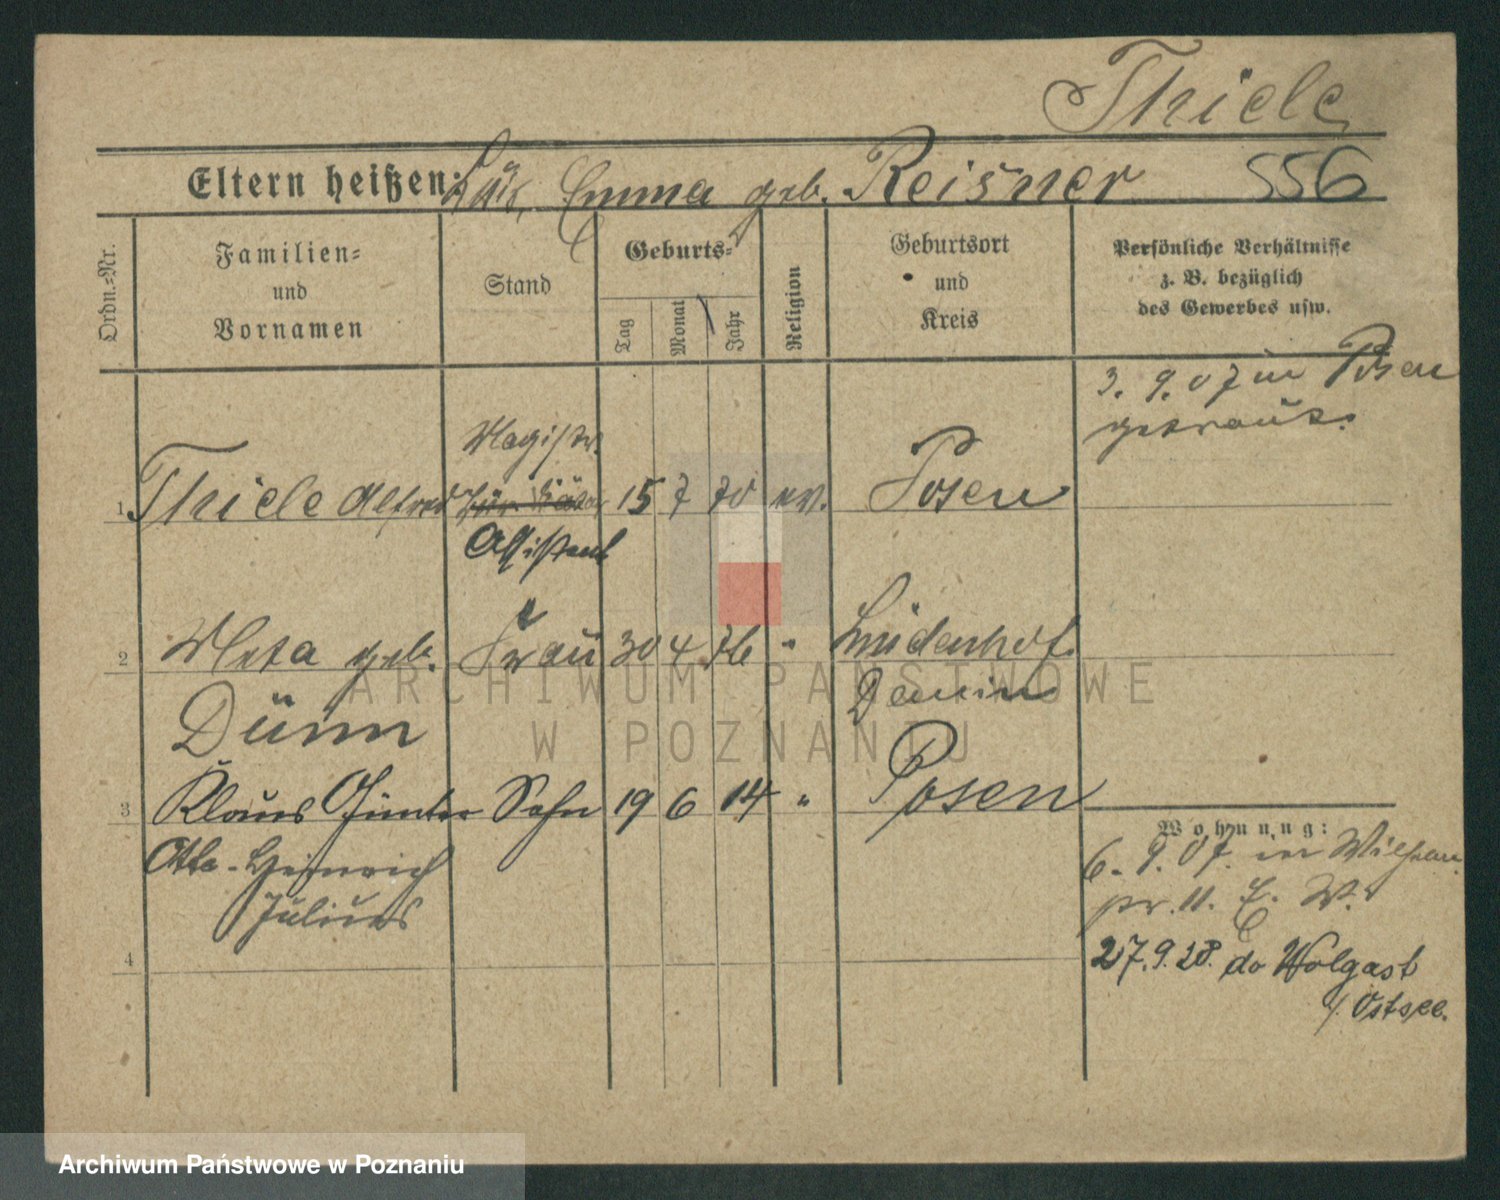 Thiele
Eltern heißen: Emma geb. Reisner 556
Ordn.-Nr.
Familien=
und
Vornamen
Stand
Geburts=
Tag
Monat
Jahr
Religion
Geburtsort
und
Kreis
Persönliche Verhältnisse
z. B. bezüglich
des Gewerbes usw.
3. 9. 07 in Posen
getraut.
Magistr.
1 Thiele Alfred 15 7 70 ev. Posen
Assistent
2 Meta geb. Frau 30 4 76 " Lindenhof
Dünn Demmin
3 Klaus Günter Sohn 19 6 14 " Posen
Otto-Heinrich
Julius
4
Wohnung:
6. 9. 07. in Wilhelm.
pr. 11. E. W.
27.9.28. do Wolgast
/. Ostsee.
ARCHIWUM PAŃSTWOWE
W POZNANIU
Archiwum Państwowe w Poznaniu